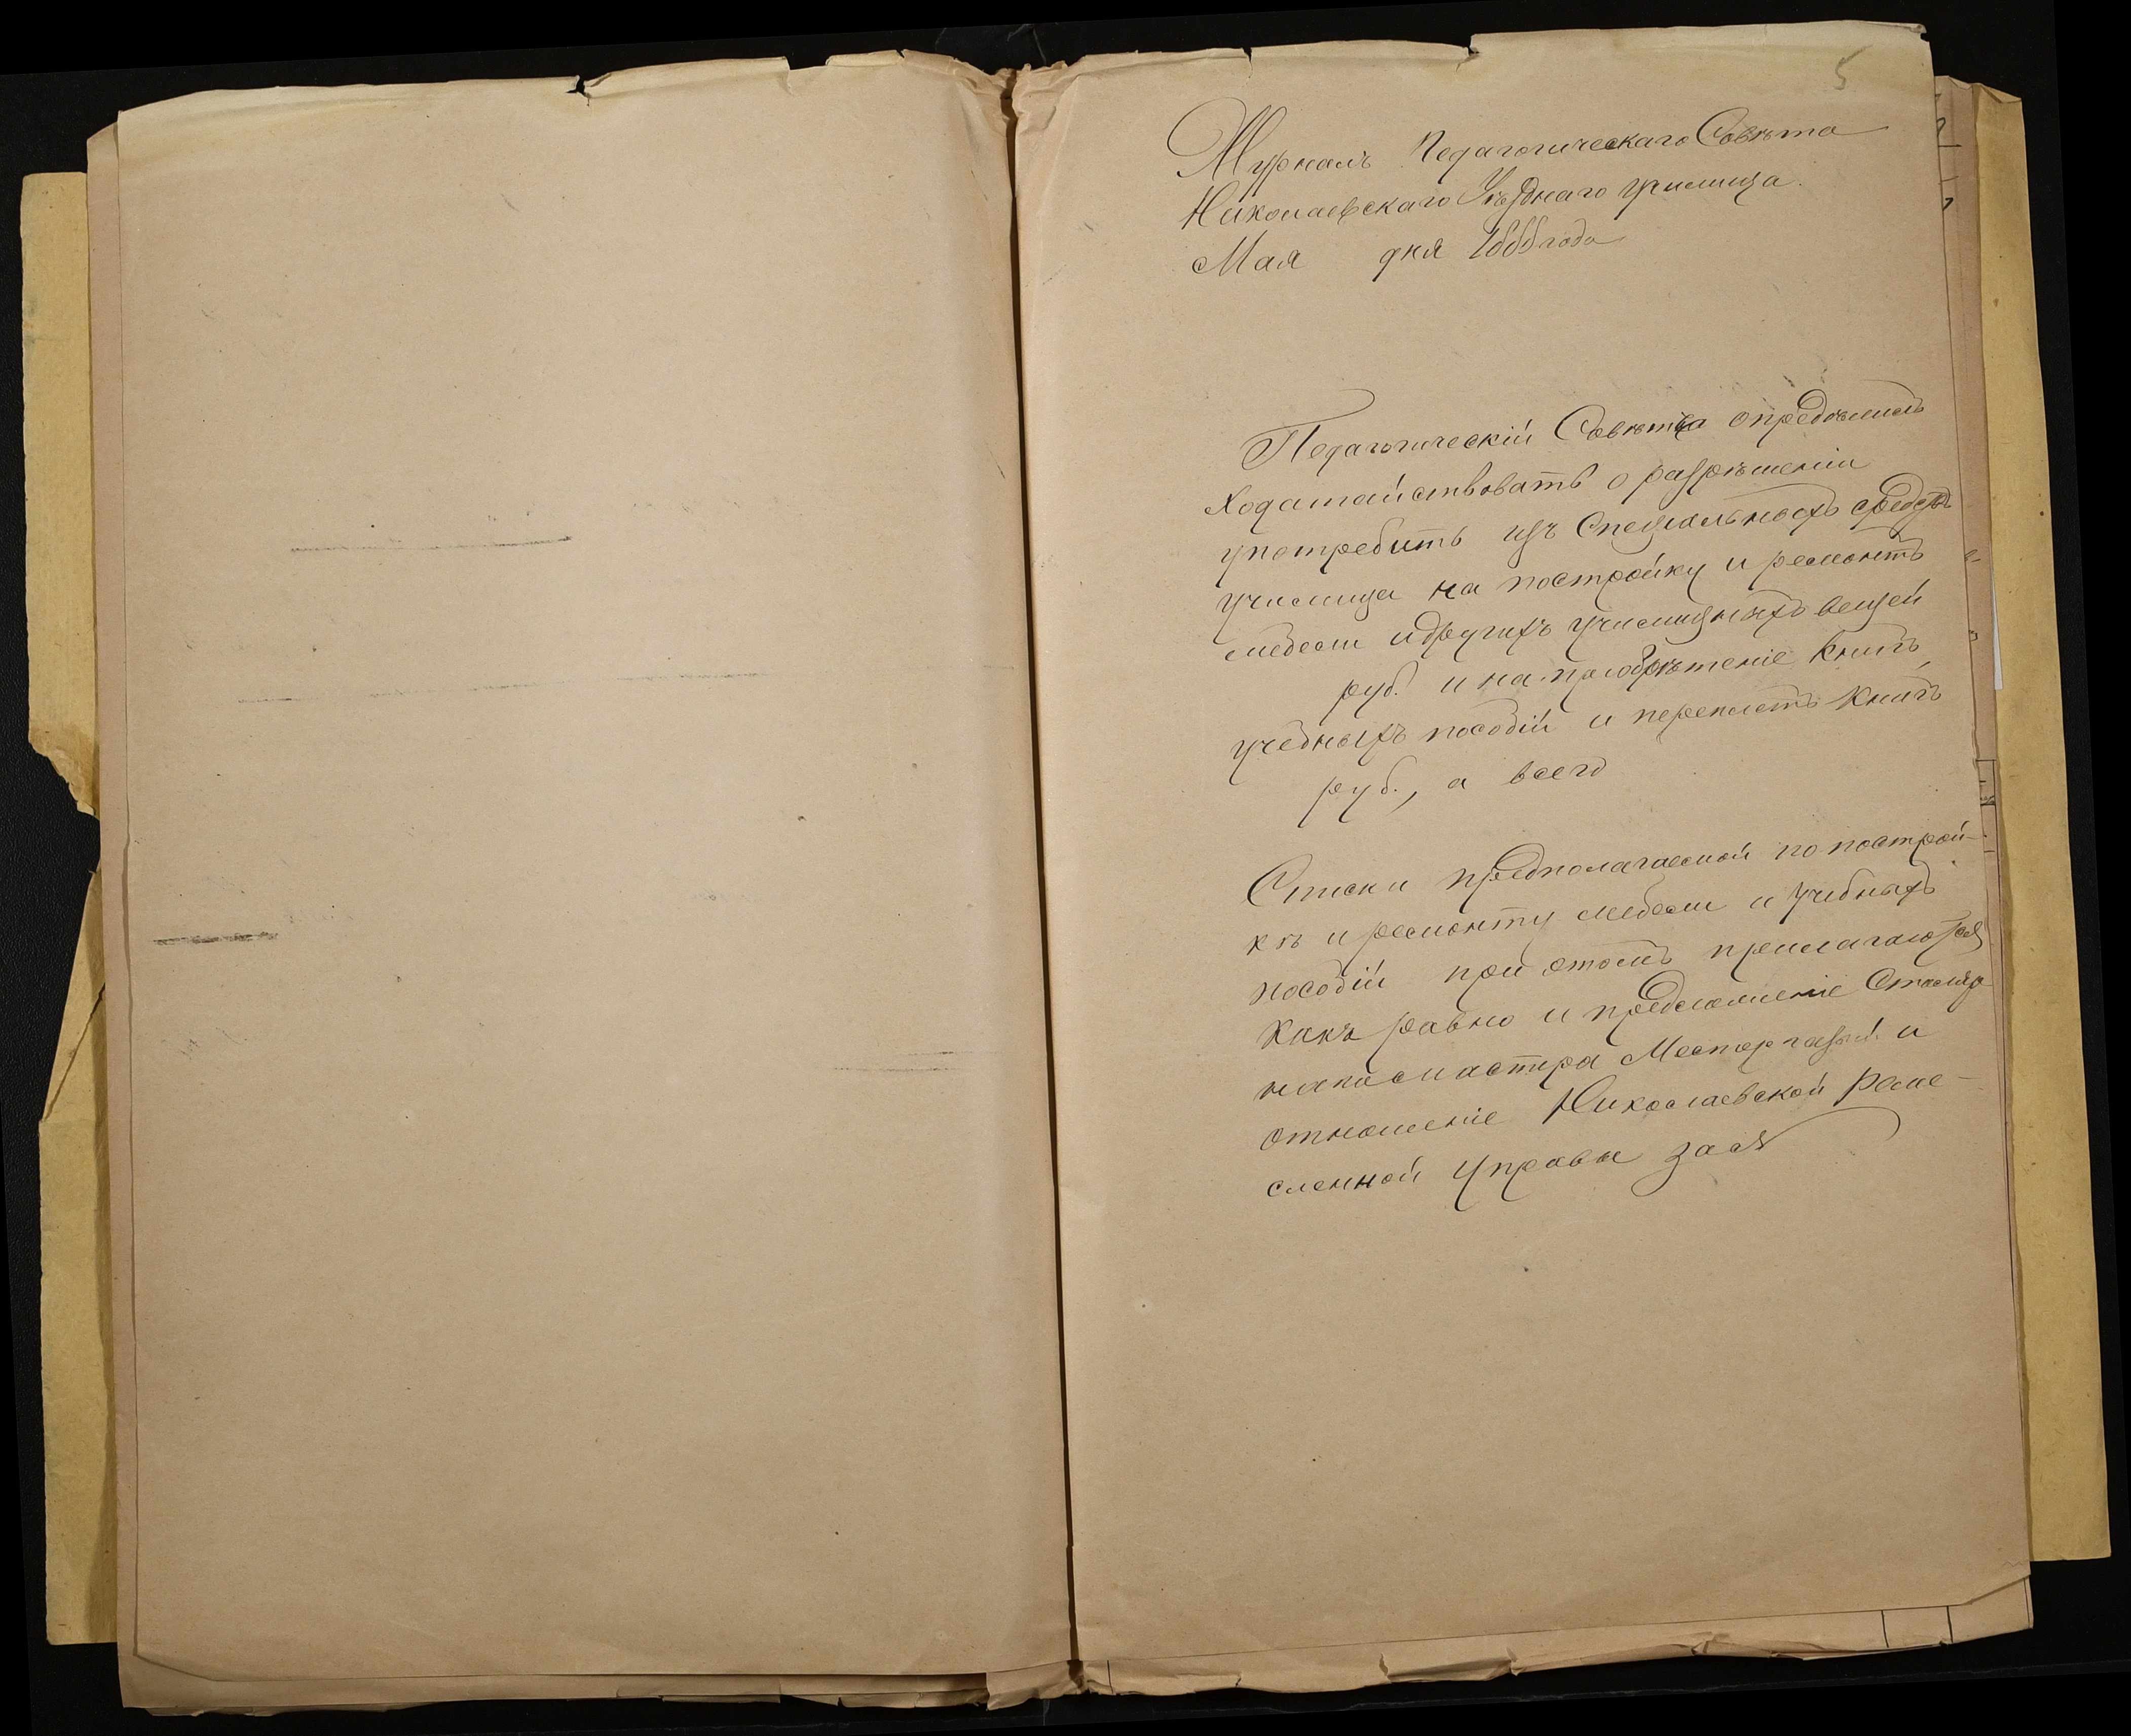 5
Журналъ Педагогическаго Совѣта
Николаевскаго Уѣзднаго училища.
Мая дня 1888 года
Педагогическій Совѣтъ опредѣлилъ
ходатайствовать о разрѣшеніи
употребить изъ спеціальныхъ средствъ
училища на постройку и ремонтъ
мебели и другихъ училищныхъ вещей
руб. и на пріобрѣтеніе книгъ,
учебныхъ пособій и переплетъ книгъ
руб., а всего
Списки предполагаемой по построй-
кѣ и ремонту мебели и учебныхъ
пособій при этомъ прилагаются
какъ равно и предложеніе Столяр
наго мастера и
отношеніе Николаевской Реме-
сленной Управы за №